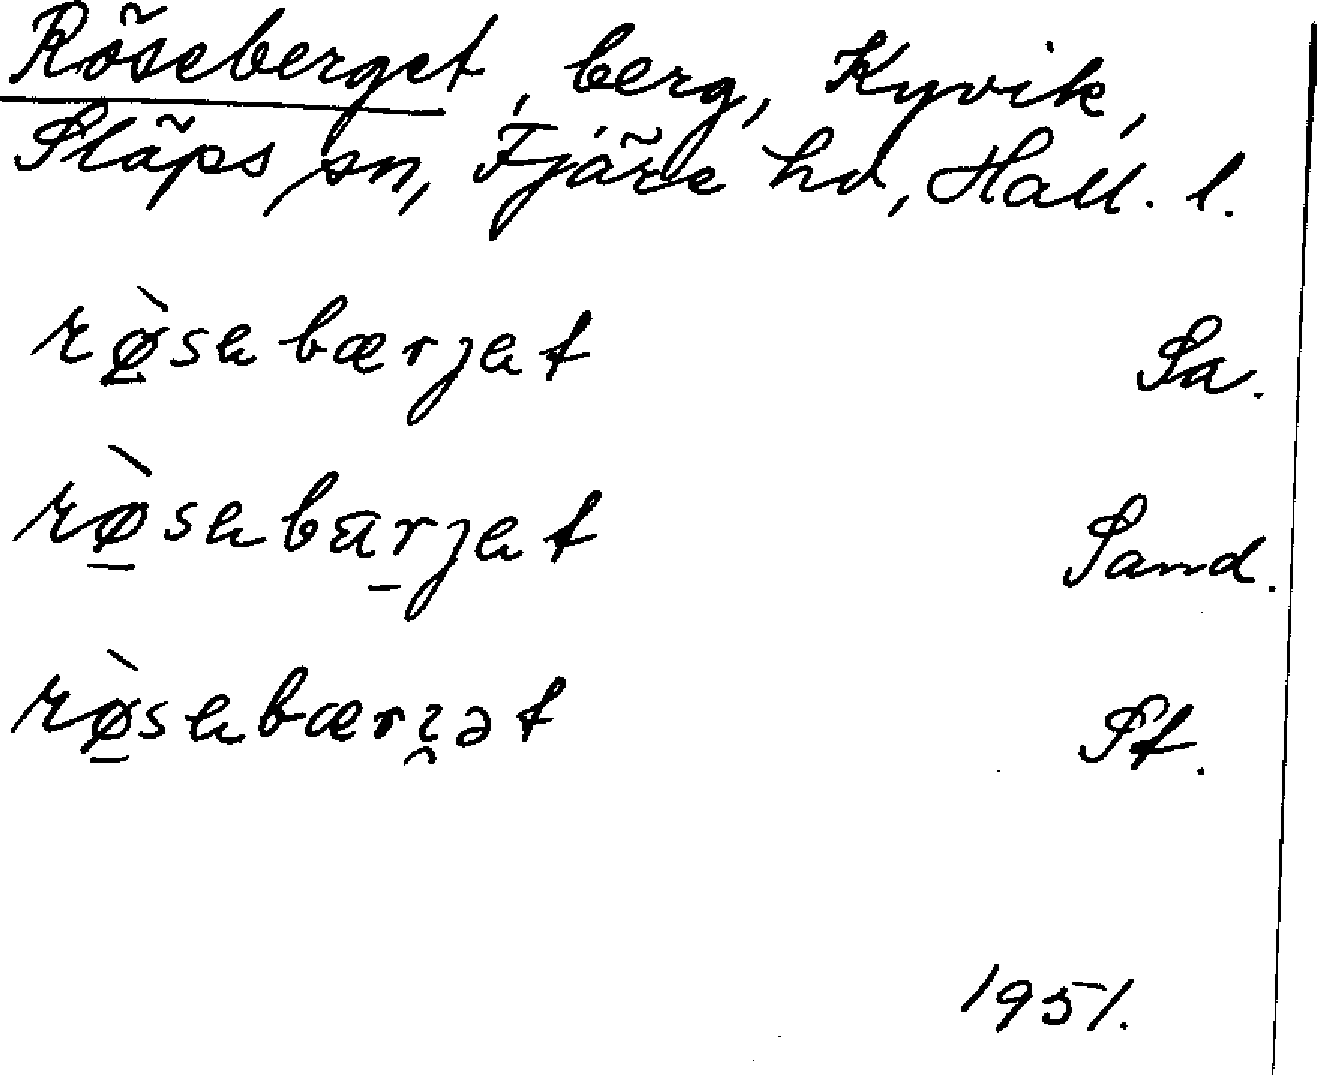 Röseberget, berg, Kyvik,
Släps sn, Fjäre hd, Hall. l.
rø̠̀sebærjet Sa.
rø̠̀sebær̠jet Sand.
rø̠̀sebærɪ̯ət St.
1951.